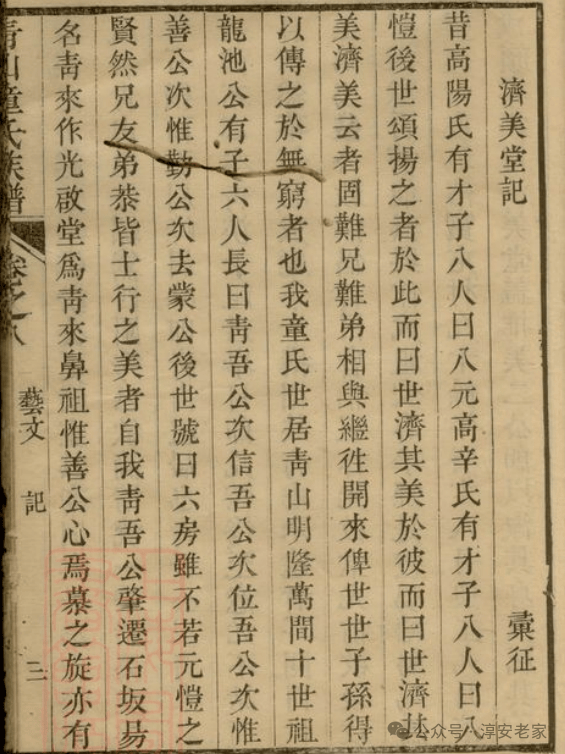 濟美堂記 彙征
昔高陽氏有才子八人曰八元高辛氏有才子八人曰八
愷後世頌揚之者於此而曰世濟其美於彼而曰世濟其
美濟美云者固難兄難弟相與繼徃開來俾世世子孫得
以傳之於無窮者也我童氏世居靑山明隆萬間十世祖
龍池公有子六人長曰靑吾公次信吾公次位吾公次惟
善公次惟勤公次去蒙公後世號曰六房雖不若元愷之
賢然兄友弟恭皆士行之美者自我靑吾公肇遷石坂易
名靑來作光啟堂爲靑來鼻祖惟善公心焉慕之旋亦有
靑山童氏族譜 卷之八 藝文 記 三
公众号·淳安老家